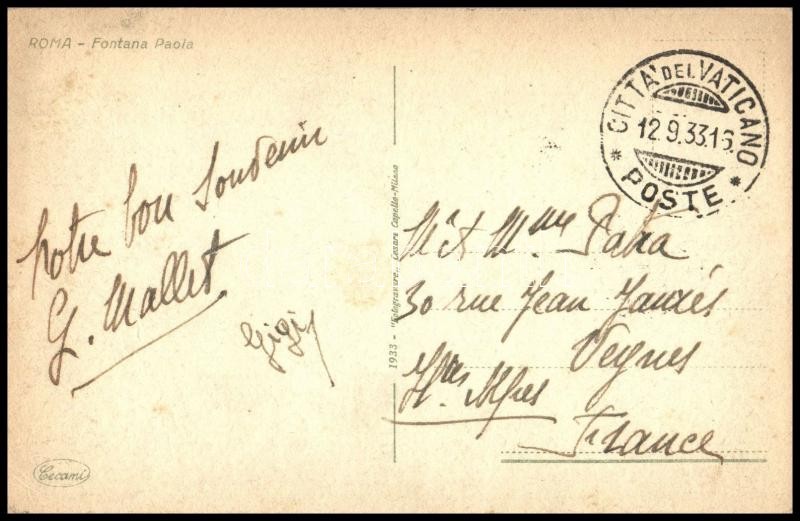 ROMA - Fontana Paola
CITTA DEL VATICANO
12.9.33.16
* POSTE *
Notre bon Souvenir
G. Mallet.
Gigi
1933 - "Fotogravure„ Cesare Capello-Milano
Mr & Mme Paka
30 rue Jean Jaurès
Veynes
Htes Alpes
France
Cecami